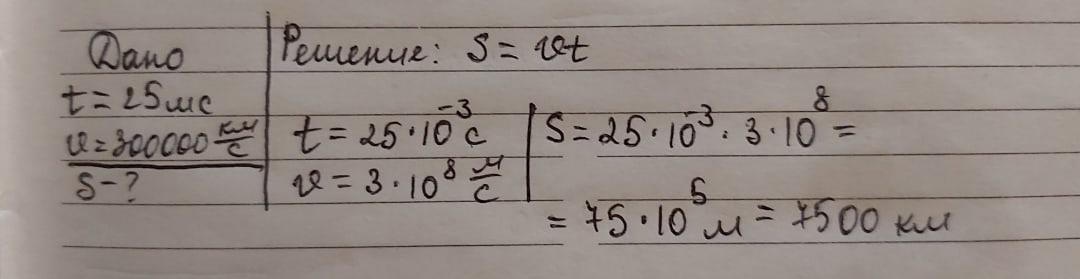 Дано
t = 25мс
v = 300000 км/с
S - ?
Решение: S = vt
t = 25·10⁻³ с
v = 3·10⁸ м/с
S = 25·10⁻³·3·10⁸ =
= 75·10⁵ м = 7500 км